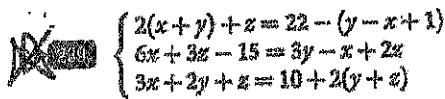 2(x + y) + z = 22 − (y − x + 1)
6x + 3z − 15 = 3y − x + 2z
3x + 2y + z = 10 + 2(y + z)